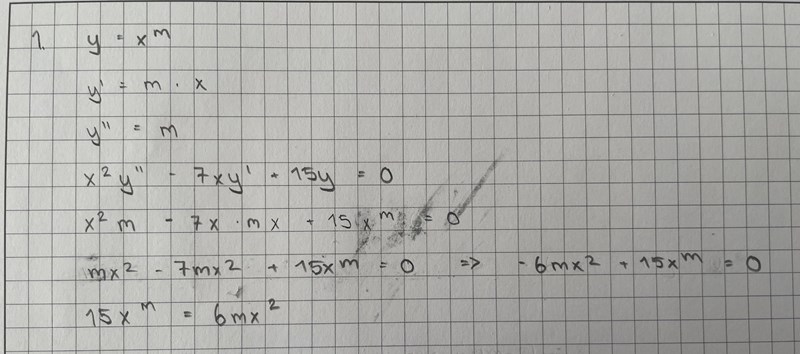 1. y = x^m
y' = m · x
y'' = m
x² y'' - 7xy' + 15y = 0
x² m - 7x · mx + 15 x^m = 0
mx² - 7mx² + 15x^m = 0 => -6mx² + 15x^m = 0
15x^m = 6mx²